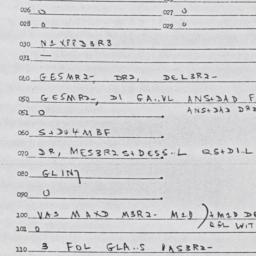 026 0 027 0
028 0 029 0
030 N1XPPD3R8
031 —
040 GESMR2-, DR2, DEL3R2-
050 GESMR2-, DI GA..VL ANS+DAD F
051 0 ANS+DAD DR2
060 S+DU4MBF
070 DR, MES3R2S+DESS.L QS+DI.L
080 GLIN7
090 0
100 VAS MAXD M3R2- M1D ) +M1D DE
101 0 QFL WIT
110 3 FOL GLA..S VAS3R2-